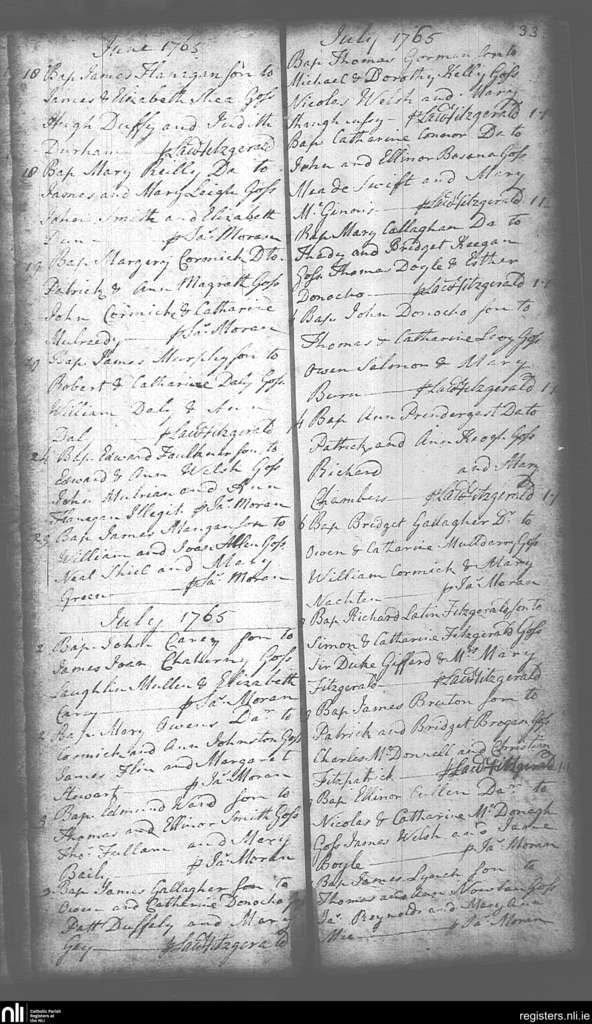 June 1765
18 Bap James Flanigan son to
James & Elizabeth Shea Goss
Hugh Duffy and Judith
Durham — p Lawd Fitzgerald
18 Bap Mary Reilly Da to
James and Mary Leigh Goss
James Smith and Elizabeth
p Jas Moran
19 Bap Margery Cormick D to
Patrick & Ann Magrath Goss
John Cormick & Catharine
Mulready — p Jas Moran
20 Bap James Murphy son to
Robert & Catharine Daly Goss
William Daly & Ann
Dal — p Lawd Fitzgerald
24 Bap Edward Faulkner son to
Edward & Ann Welsh Goss
John Mulrian and Ann
Flanegan Illegit p Jas Moran
25 Bap James Mangan son to
William and Joan Allen Goss
Neal Shiel and Mary
Green — p Jas Moran
July 1765
2 Bap John Carey son to
James Joan Goss
Laughlin Mullen & Elizabeth
Carey — p Jas Moran
2 Bap Mary Owens Dar to
Cormick and Ann Johnston Goss
James Flin and Margaret
Stewart — p Jas Moran
Bap Edmund Ward son to
Thomas and Ellinor Smith Goss
Thos Fullam and Mary
Baily — p Jas Moran
3 Bap James Gallagher son to
Owen and Catherine Donocho
Patt Duffy and Mary
Gay — p Lawd Fitzgerald
33
July 1765
Bap Thomas Gorman son to
Michael & Dorothy Kelly Goss
Nicolas Welsh and Mary
p Lawd Fitzgerald 1-1
Bap Catharine Connor Da to
John and Ellinor Goss
Meade Swift and Mary
McGennis — p Lawd Fitzgerald 1-1
Bap Mary Callaghan Da to
Thady and Bridget Keegan
Goss Thomas Doyle & Esther
Donocho — p Lawd Fitzgerald 1-1
4 Bap John Donocho son to
Thomas & Catharine Goss
Owen Salmon & Mary
Burn — p Lawd Fitzgerald 1-1
4 Bap Ann Prendergast Da to
Patrick and Ann Goss
Richard and Mary
Chambers — p Lawd Fitzgerald 1-1
6 Bap Bridget Gallagher Dr to
Owen & Catharine Goss
William Cormick & Mary
Nachten — p Jas Moran
Bap Richard Latin Fitzgerald son to
Simon & Catharine Fitzgerald Goss
Sir Duke Giffard & Mrs Mary
Fitzgerald — p Lawd Fitzgerald
Bap James Bruton son to
Patrick and Bridget Brogan Goss
Charles McDonnell and Christian
Fitzpatick — p Lawd Fitzgerald 1-1
Bap Ellinor Cullen Dar to
Nicolas & Catharine McDonagh
Goss James Welsh and Jane
Boyle — p Jas Moran
Bap James Lynch son to
Thomas and Goss
Jas Reynolds and Mary Ann
p Jas Moran
nli
Catholic Parish
Registers at
the NLI
registers.nli.ie